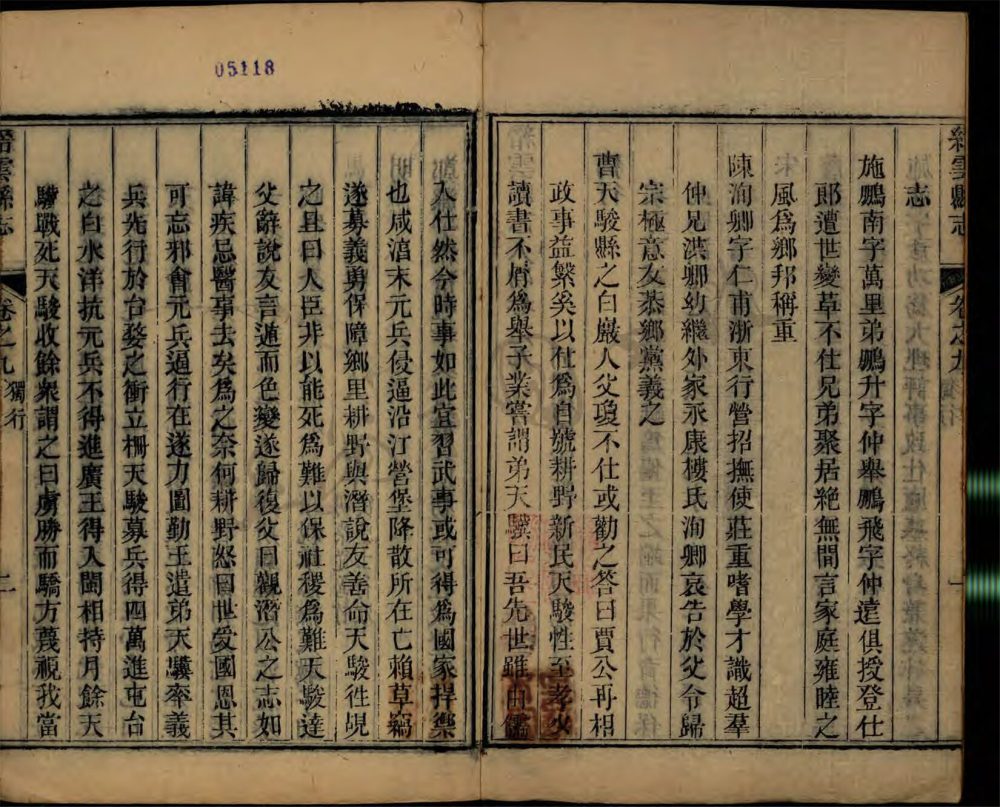 05118
縉雲縣志
卷之九
志
施鵬南字萬里弟鵬升字仲舉鵬飛字仲遠俱授登仕
郎遭世變革不仕兄弟聚居絶無間言家庭雍睦之
風爲鄉邦稱重
陳洵卿字仁甫浙東行營招撫使莊重嗜學才識超羣
仲見洪卿幼繼外家永康樓氏洵卿哀告於父令歸
宗極意友恭鄉黨義之
曹天駿縣之白巖人父瓊不仕或勸之答曰賈公再相
政事益繁奚以仕爲自號耕野新民天駿性至孝少
讀書不屑爲舉子業嘗謂弟天驥曰吾先世雖由儒
入仕然今時事如此宜習武事或可得爲國家捍禦
也咸淳末元兵侵逼沿江營堡降散所在亡賴草竊
遂募義勇保障鄉里耕野與潛說友善命天駿徃覘
之且曰人臣非以能死爲難以保社稷爲難天駿達
父辭說友言遁而色變遂歸復父曰觀潛公之志如
諱疾忌醫事去矣爲之奈何耕野怒曰世受國恩其
可忘邪會元兵逼行在遂力圖勤王遣弟天驥率義
兵先行於台婺之衝立柵天駿募兵得四萬進屯台
之白水洋抗元兵不得進廣王得入閩相持月餘天
驥戰死天駿收餘衆謂之曰虜勝而驕方蔑視我當
縉雲縣志
卷之九
獨行
二